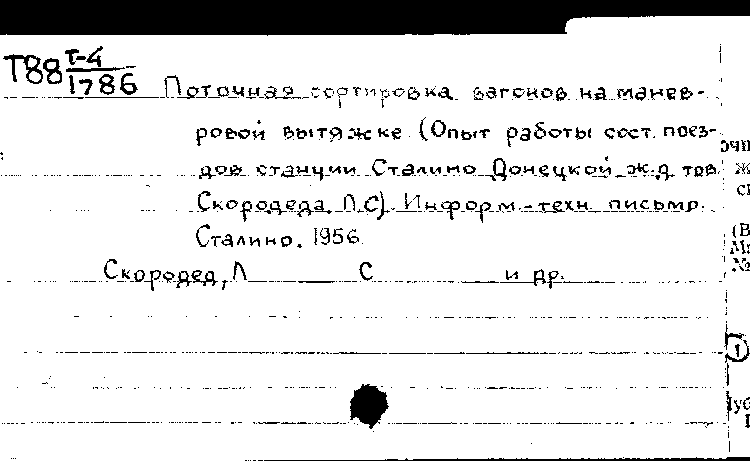 Т88 Т-4
1786
Поточная сортировка вагонов на манев-
ровой вытяжке (Опыт работы сост. поез-
дов станции Сталино Донецкой ж.д. тов
Скородеда Л.С). Информ.-техн. письмо.
Сталино. 1956
Скородед, Л С и др.
1